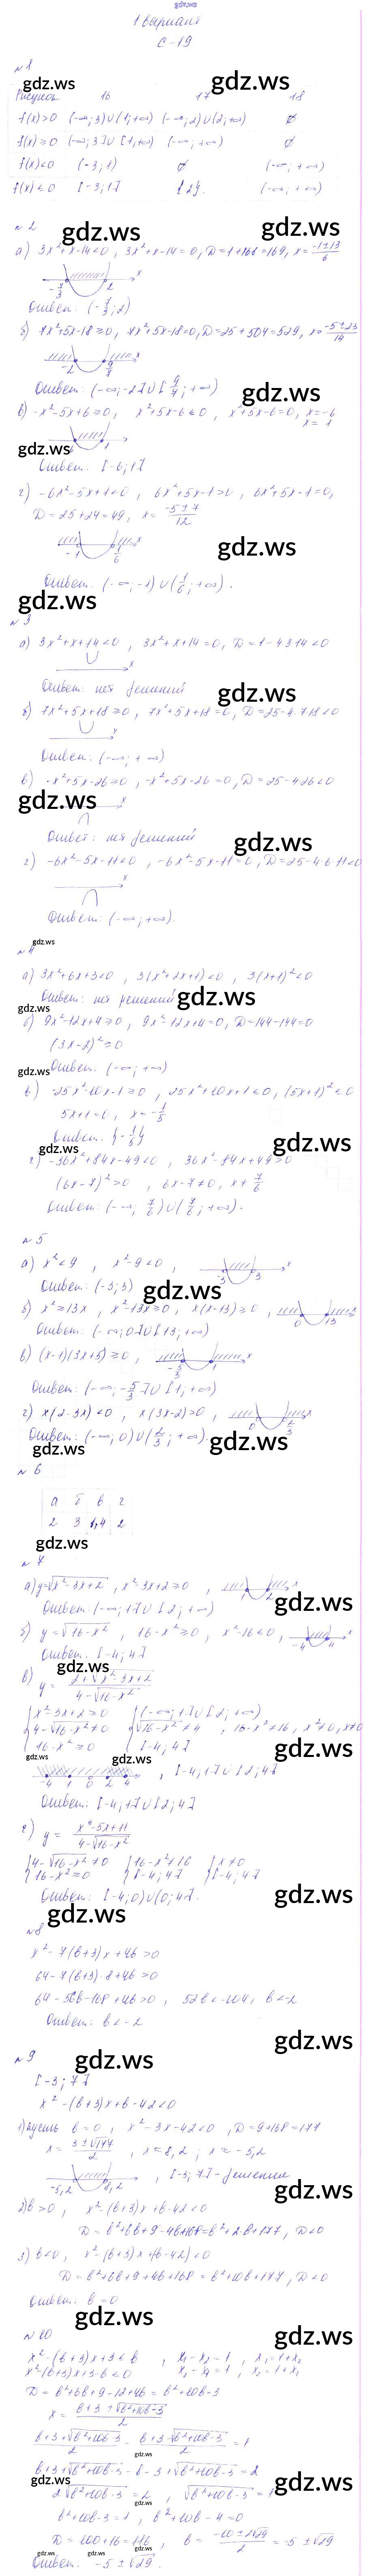 gdz.ws
1 вариант
С-19
№1
gdz.ws
gdz.ws
Рисунок 16 17 18
f(x)>0 (-∞;3)∪(1;+∞) (-∞;2)∪(2;+∞) ∅
f(x)≥0 (-∞;3]∪[1;+∞) (-∞;+∞) ∅
f(x)<0 (-3;1) ∅ (-∞;+∞)
f(x)≤0 [-3;1] {2}. (-∞;+∞)
№2
gdz.ws
gdz.ws
а) 3x²+x-14<0, 3x²+x-14=0, D=1+168=169, x=(-1±13)/6
-7/3 2 x
Ответ: (-7/3;2)
б) 7x²+5x-18≥0, 7x²+5x-18=0, D=25+504=529, x=(-5±23)/14
-2 9/7 x
Ответ: (-∞;-2]∪[9/7;+∞)
gdz.ws
в) -x²-5x+6≥0, x²+5x-6≤0, x²+5x-6=0, x=-6
x=1
gdz.ws
-6 1
Ответ: [-6;1]
г) -6x²-5x+1<0, 6x²+5x-1>0, 6x²+5x-1=0,
D=25+24=49, x=(-5±7)/12
gdz.ws
-1 1/6
Ответ: (-∞;-1)∪(1/6;+∞).
gdz.ws
№3
а) 3x²+x+14<0, 3x²+x+14=0, D=1-4·3·14<0
x
Ответ: нет решений
gdz.ws
б) 7x²+5x+18≥0, 7x²+5x+18=0, D=25-4·7·18<0
x
Ответ: (-∞;+∞)
в) -x²+5x-26≥0, -x²+5x-26=0, D=25-4·26<0
gdz.ws
x
Ответ: нет решений
gdz.ws
г) -6x²-5x-11<0, -6x²-5x-11=0, D=25-4·6·11<0
x
Ответ: (-∞;+∞).
gdz.ws
№4
а) 3x²+6x+3<0, 3(x²+2x+1)<0, 3(x+1)²<0
Ответ: нет решений
gdz.ws
gdz.ws
б) 9x²-12x+4≥0, 9x²-12x+4=0, D=144-144=0
(3x-2)²≥0
gdz.ws
Ответ: (-∞;+∞)
в) -25x²-10x-1≥0, 25x²+10x+1≤0, (5x+1)²≤0
5x+1=0, x=-1/5
Ответ: {-1/5}
gdz.ws
gdz.ws
г) -36x²+84x-49<0, 36x²-84x+49>0
(6x-7)²>0, 6x-7≠0, x≠7/6
Ответ: (-∞;7/6)∪(7/6;+∞).
№5
а) x²<9, x²-9<0,
-3 3 x
Ответ: (-3;3)
gdz.ws
б) x²≥13x, x²-13x≥0, x(x-13)≥0,
0 13 x
Ответ: (-∞;0]∪[13;+∞)
в) (x-1)(3x+5)≥0,
-5/3 1 x
Ответ: (-∞;-5/3]∪[1;+∞)
г) x(2-3x)<0, x(3x-2)>0,
0 2/3 x
Ответ: (-∞;0)∪(2/3;+∞).
gdz.ws
gdz.ws
№6
а б в г
2 3 1,4 2
gdz.ws
№7
а) y=√(x²-3x+2), x²-3x+2≥0,
1 2 x
Ответ: (-∞;1]∪[2;+∞)
gdz.ws
б) y=√(16-x²), 16-x²≥0, x²-16≤0,
-4 4 x
Ответ: [-4;4]
gdz.ws
в) y=(2+√(x²-3x+2))/(4-√(16-x²))
{x²-3x+2≥0 {(-∞;1]∪[2;+∞)
4-√(16-x²)≠0 √(16-x²)≠4, 16-x²≠16, x²≠0, x≠0
16-x²≥0 [-4;4]
gdz.ws
gdz.ws
gdz.ws
-4 1 0 2 4 x, [-4;1]∪[2;4]
Ответ: [-4;1]∪[2;4]
г) y=(x²-5x+11)/(4-√(16-x²))
{4-√(16-x²)≠0 {16-x²≠16 {x≠0
16-x²≥0 [-4;4] [-4;4]
Ответ: [-4;0)∪(0;4].
gdz.ws
gdz.ws
№8
x²-7(b+3)x+4b>0
64-7(b+3)·8+4b>0
64-56b-168+4b>0, 52b<-104, b<-2
Ответ: b<-2
gdz.ws
№9
gdz.ws
[-3;7]
x²-(b+3)x+b-42<0
1) пусть b=0, x²-3x-42<0, D=9+168=177
x=(3±√177)/2, x≈8,2; x≈-5,2
-5,2 8,2 x, [-3;7]-решения
gdz.ws
2) b>0, x²-(b+3)x+b-42<0
D=b²+6b+9-4b+168=b²+2b+177, D<0
3) b<0, x²-(b+3)x+(b-42)<0
D=b²+6b+9+4b+168=b²+10b+177, D<0
Ответ: b=0
gdz.ws
№10
gdz.ws
x²-(b+3)x+3<b, x₁-x₂=1, x₁=1+x₂
x²-(b+3)x+3-b<0 x₂-x₁=1, x₂=1+x₁
D=b²+6b+9-12+4b=b²+10b-3
x=(b+3±√(b²+10b-3))/2
(b+3+√(b²+10b-3))/2-(b+3-√(b²+10b-3))/2=1
gdz.ws
b+3+√(b²+10b-3)-b-3+√(b²+10b-3)=2
gdz.ws
gdz.ws
2√(b²+10b-3)=2, √(b²+10b-3)=1
gdz.ws
b²+10b-3=1, b²+10b-4=0
D=100+16=116, b=(-10±2√29)/2=-5±√29
gdz.ws
gdz.ws
gdz.ws
Ответ: -5±√29.